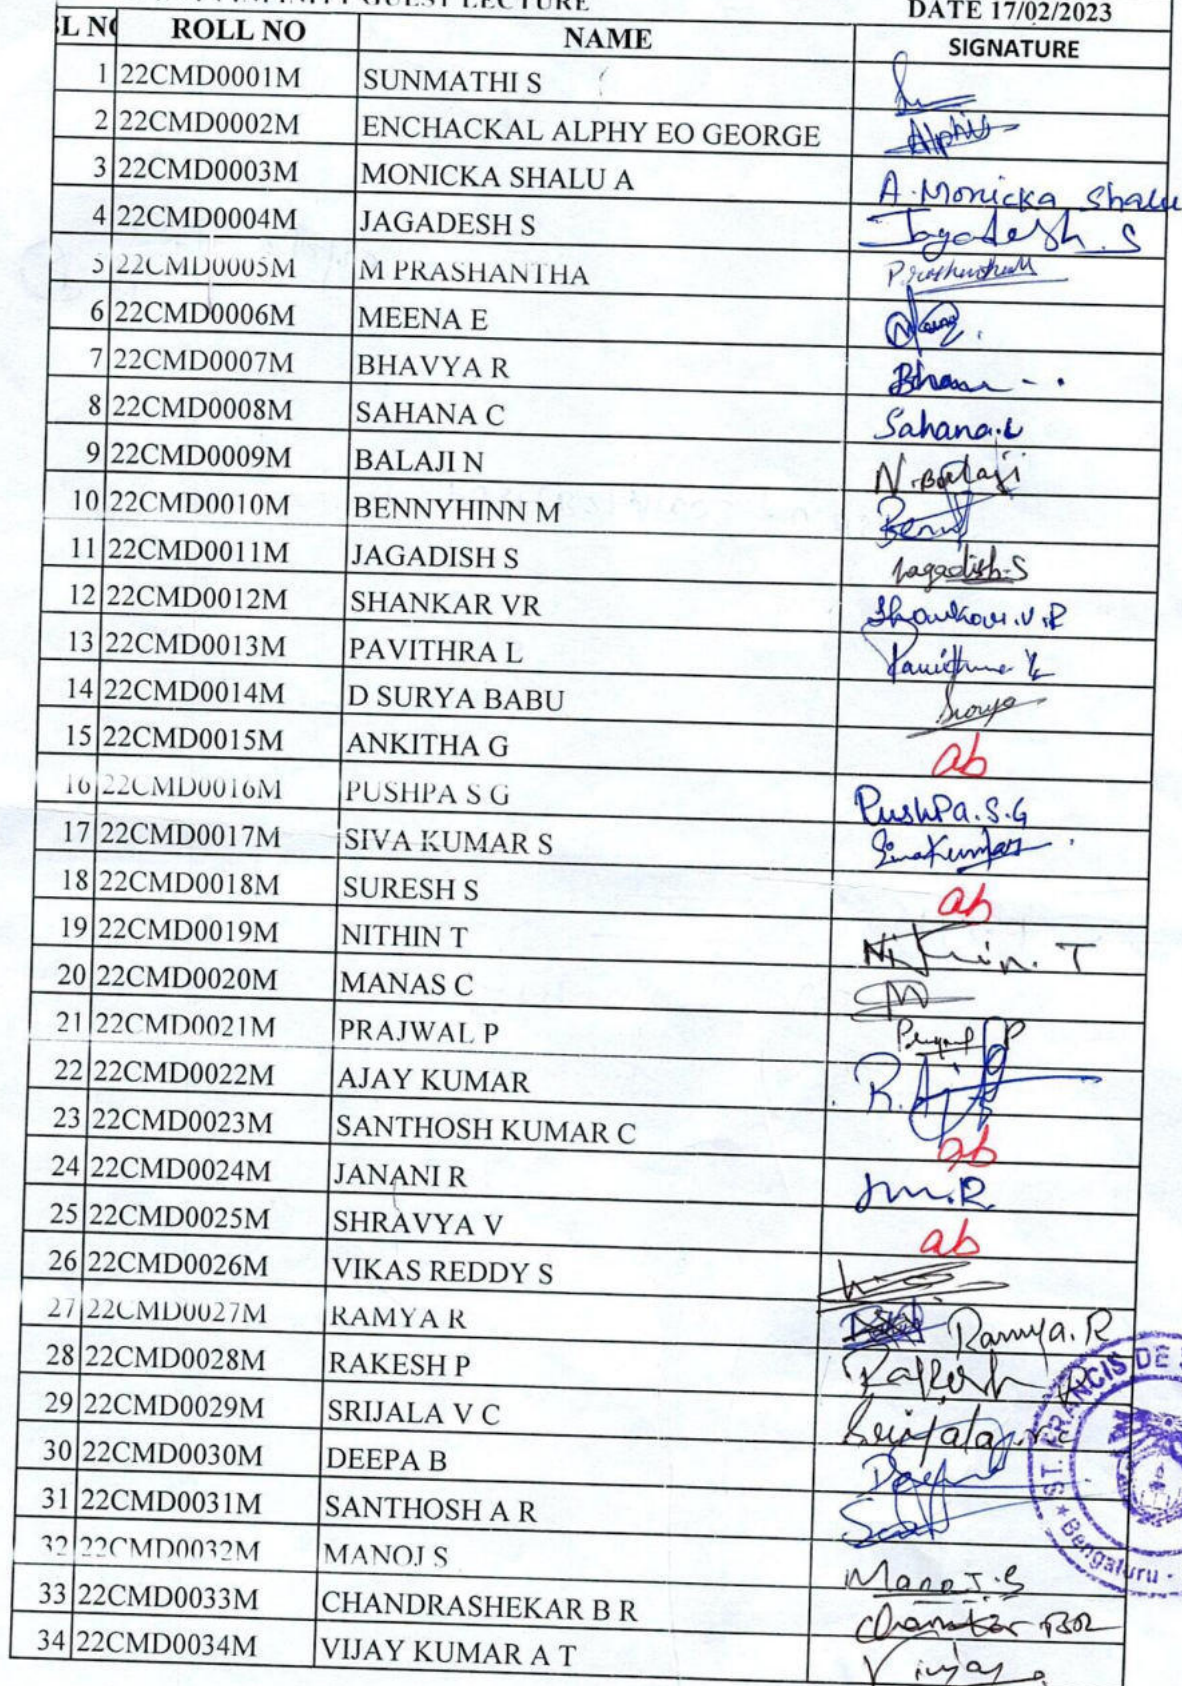 GUEST LECTURE
DATE 17/02/2023
SL NO ROLL NO NAME SIGNATURE
1 22CMD0001M SUNMATHI S
2 22CMD0002M ENCHACKAL ALPHY EO GEORGE Alphy
3 22CMD0003M MONICKA SHALU A A. Monicka Shalu
4 22CMD0004M JAGADESH S Jagadesh. S
5 22CMD0005M M PRASHANTHA
6 22CMD0006M MEENA E
7 22CMD0007M BHAVYA R
8 22CMD0008M SAHANA C Sahana.C
9 22CMD0009M BALAJI N N. Balaji
10 22CMD0010M BENNYHINN M
11 22CMD0011M JAGADISH S Jagadish.S
12 22CMD0012M SHANKAR VR Shankar.V.R
13 22CMD0013M PAVITHRA L
14 22CMD0014M D SURYA BABU Surya
15 22CMD0015M ANKITHA G ab
16 22CMD0016M PUSHPA S G PushPa.S.G
17 22CMD0017M SIVA KUMAR S SivaKumar
18 22CMD0018M SURESH S ab
19 22CMD0019M NITHIN T Nithin. T
20 22CMD0020M MANAS C
21 22CMD0021M PRAJWAL P
22 22CMD0022M AJAY KUMAR
23 22CMD0023M SANTHOSH KUMAR C ab
24 22CMD0024M JANANI R
25 22CMD0025M SHRAVYA V ab
26 22CMD0026M VIKAS REDDY S
27 22CMD0027M RAMYA R Ramya. R
28 22CMD0028M RAKESH P Rakesh P
29 22CMD0029M SRIJALA V C Srijala
30 22CMD0030M DEEPA B
31 22CMD0031M SANTHOSH A R
32 22CMD0032M MANOJ S Manoj.S
33 22CMD0033M CHANDRASHEKAR B R
34 22CMD0034M VIJAY KUMAR A T Vijay
ST. FRANCIS DE
Bengaluru -